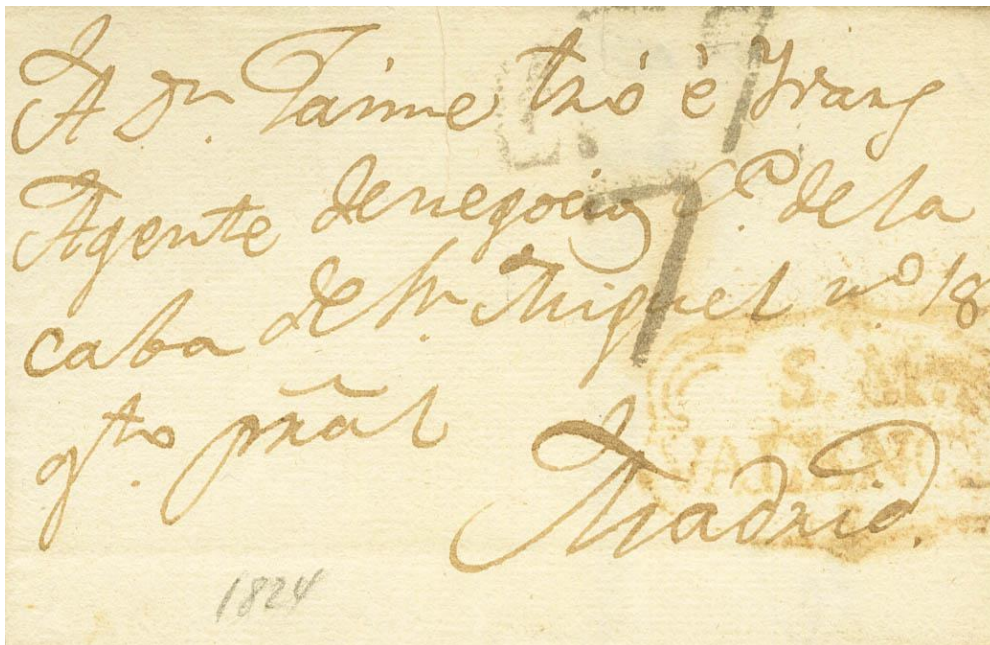 A Dn. Jaime Tró é Yranz
Agente de negocios C.e de la
caba de Sn Miguel n.o 18
qto. prāl
Madrid.
7
S. N.
VALENC
1824